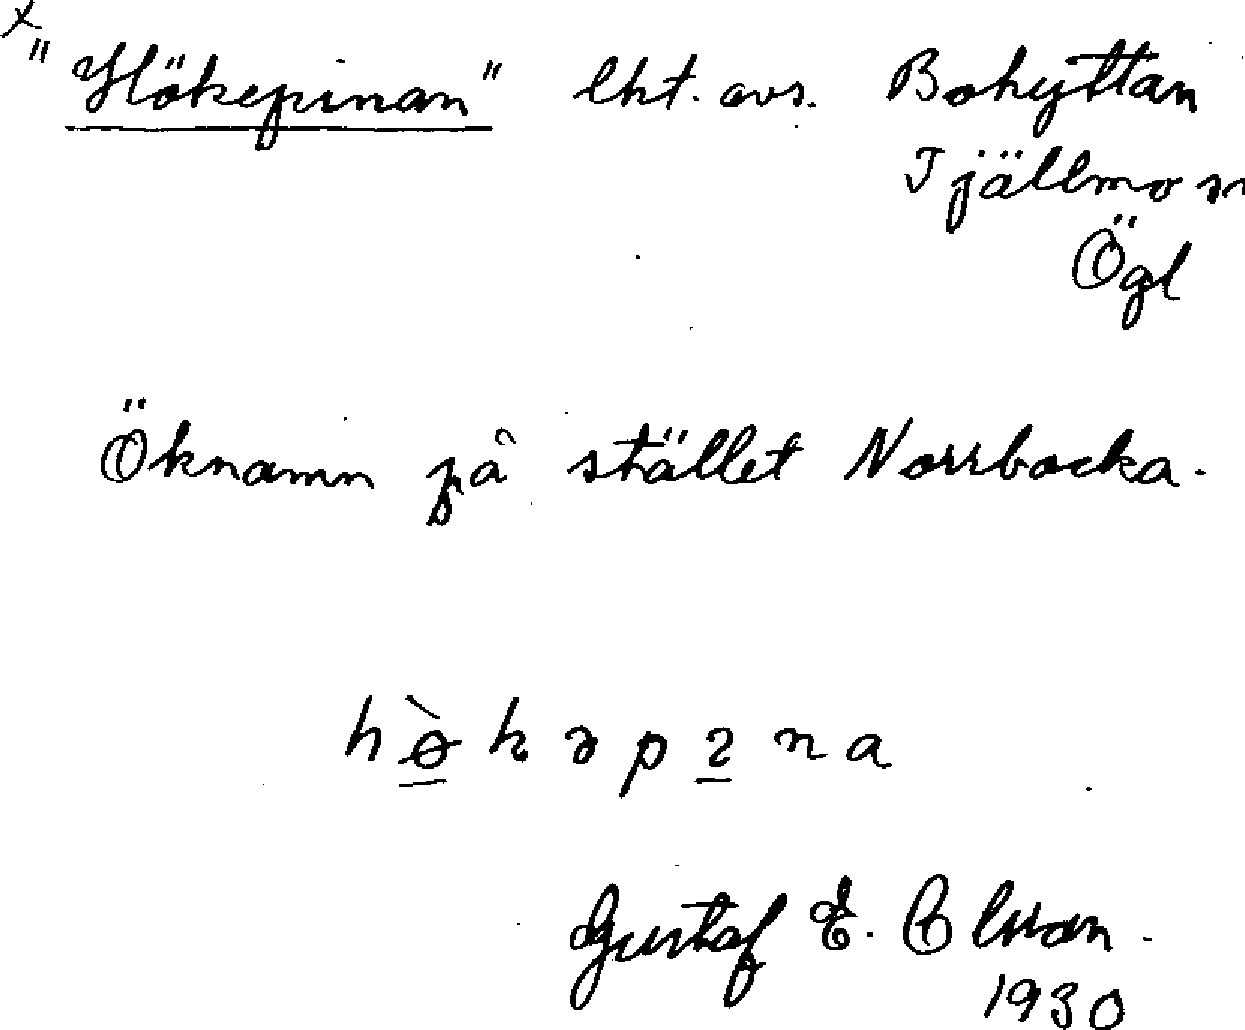 x
"Hökepinan" lht. avs. Bohyttan
Tjällmo sn
Ögl
Öknamn på stället Norrbocka.
hø̀kəpɩna
Gustaf E. Olson.
1930